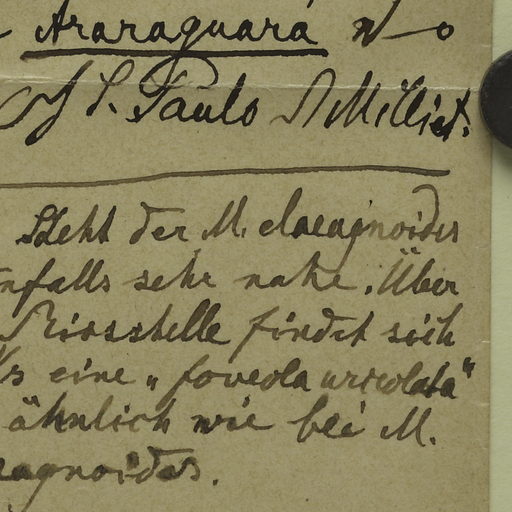 Araraguará No
S. Paulo Milliet.
Steht der M. elaeagnoides
nfalls sehr nahe. Über
Rissstelle findet sich
eine „foveola urceolata“
ähnlich wie bei M.
eagnoides.